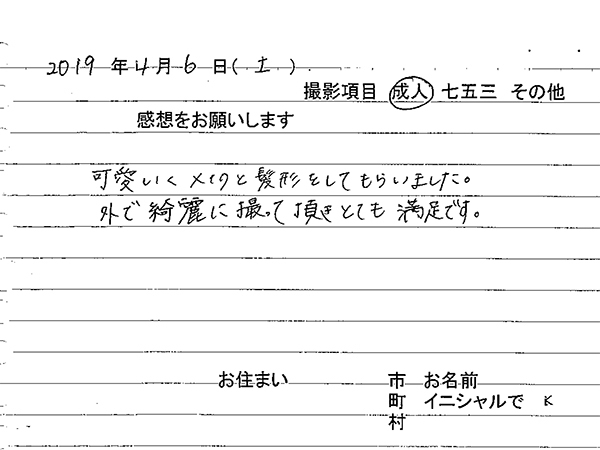 2019年4月6日(土)
撮影項目 成人 七五三 その他
感想をお願いします
可愛いくメイクと髪形をしてもらいました。
外で綺麗に撮って頂きとても満足です。
お住まい 市 お名前
町 イニシャルで K
村